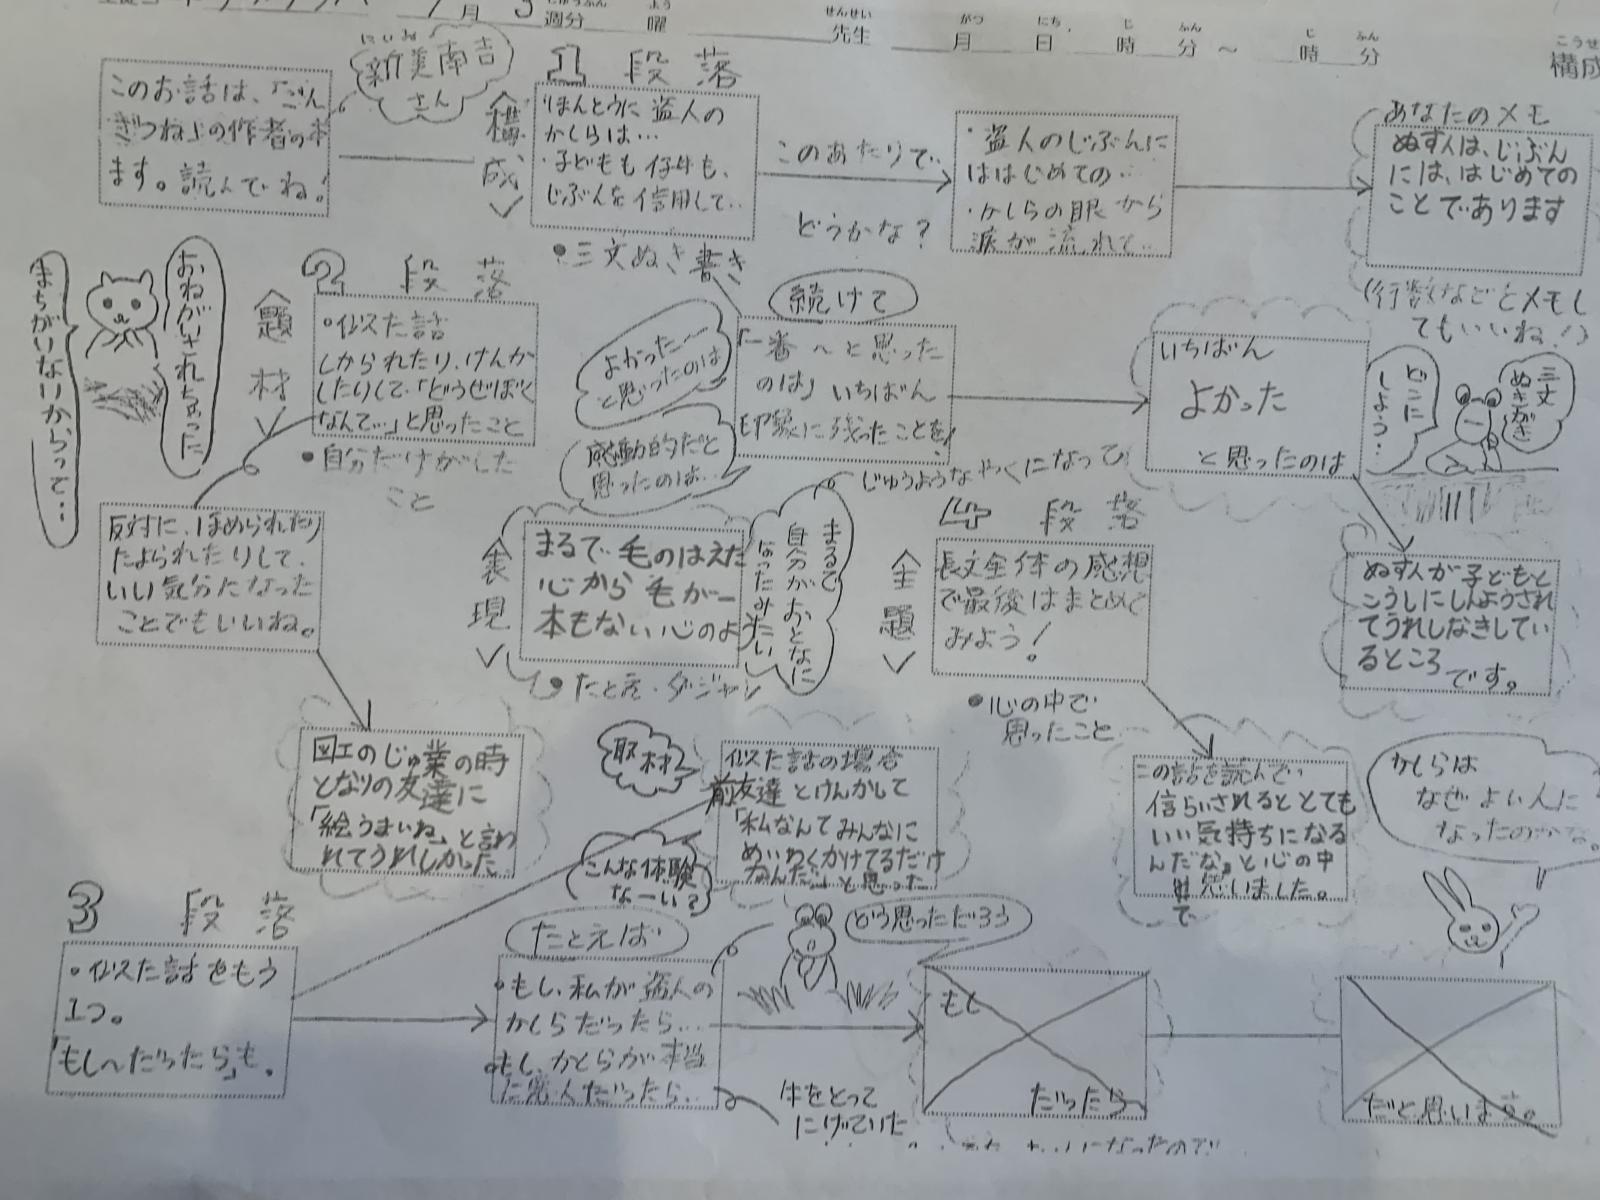 月 3 週分 曜 先生 月 日 時 分 ～ 時 分
構成
このお話は、「ごん
ぎつね」の作者の本
ます。読んでね！
新美南吉
にいみ
さん
1 段落
〈構成〉
ほんとうに盗人の
かしらは…
・子どもも仔牛も、
じぶんを信用して…
・三文ぬき書き
このあたりで、
どうかな？
・盗人のじぶんに
ははじめての…
・かしらの眼から
涙が流れて…
あなたのメモ
ぬす人は、じぶん
には、はじめての
ことであります
（行数などとメモし
てもいいね！）
まちがいないからって…
おねがいされちゃった
2 段落
〈題材〉
・似た話
しかられたり、けんか
したりして、「どうせぼく
なんて…」と思ったこと
・自分だけがした
こと
よかった〜
と思ったのは
感動的だと
思ったのは…
続けて
「一番〜と思った
のは」いちばん
印象に残ったことを！
いちばん
よかった
と思ったのは
どこに
しよう…
三文
ぬきがき
反対に、ほめられたり
たよられたりして、
いい気分になった
ことでもいいね。
〈表現〉
まるで毛のはえた
心から毛が一
本もない心のよ
・たとえ・ダジャレ
まるで
自分がおとなに
なったみたい
じゅうようなやくになって
4 段落
〈主題〉
長文全体の感想
で最後はまとめて
みよう！
・心の中で
思ったこと
ぬす人が子どもと
こうしにしんようされ
てうれしなきしてい
るところ
です。
図工のじゅ業の時
となりの友達に
「絵うまいね」と言わ
れてうれしかった
取材
こんな体験
なーい？
似た話の場合
前友達とけんかして
「私なんてみんなに
めいわくかけてるだけ
なんだ」と思った
この話を読んで
信らいされるととても
いい気持ちになる
んだな」と心の中
で思いました。
かしらは
なぜよい人に
なったのかな。
3 段落
・似た話をもう
1つ。
「もし〜だったら」も。
たとえば
・もし、私が盗人の
かしらだったら…
もし、かしらが本当
に悪人だったら…
どう思っただろう
牛をとって
にげていた
もし
だったら
だと思います。
になったので